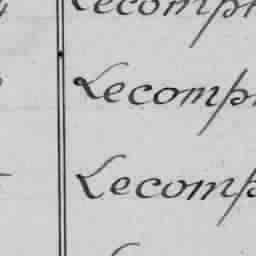 Lecomp
Lecomp
Lecomp